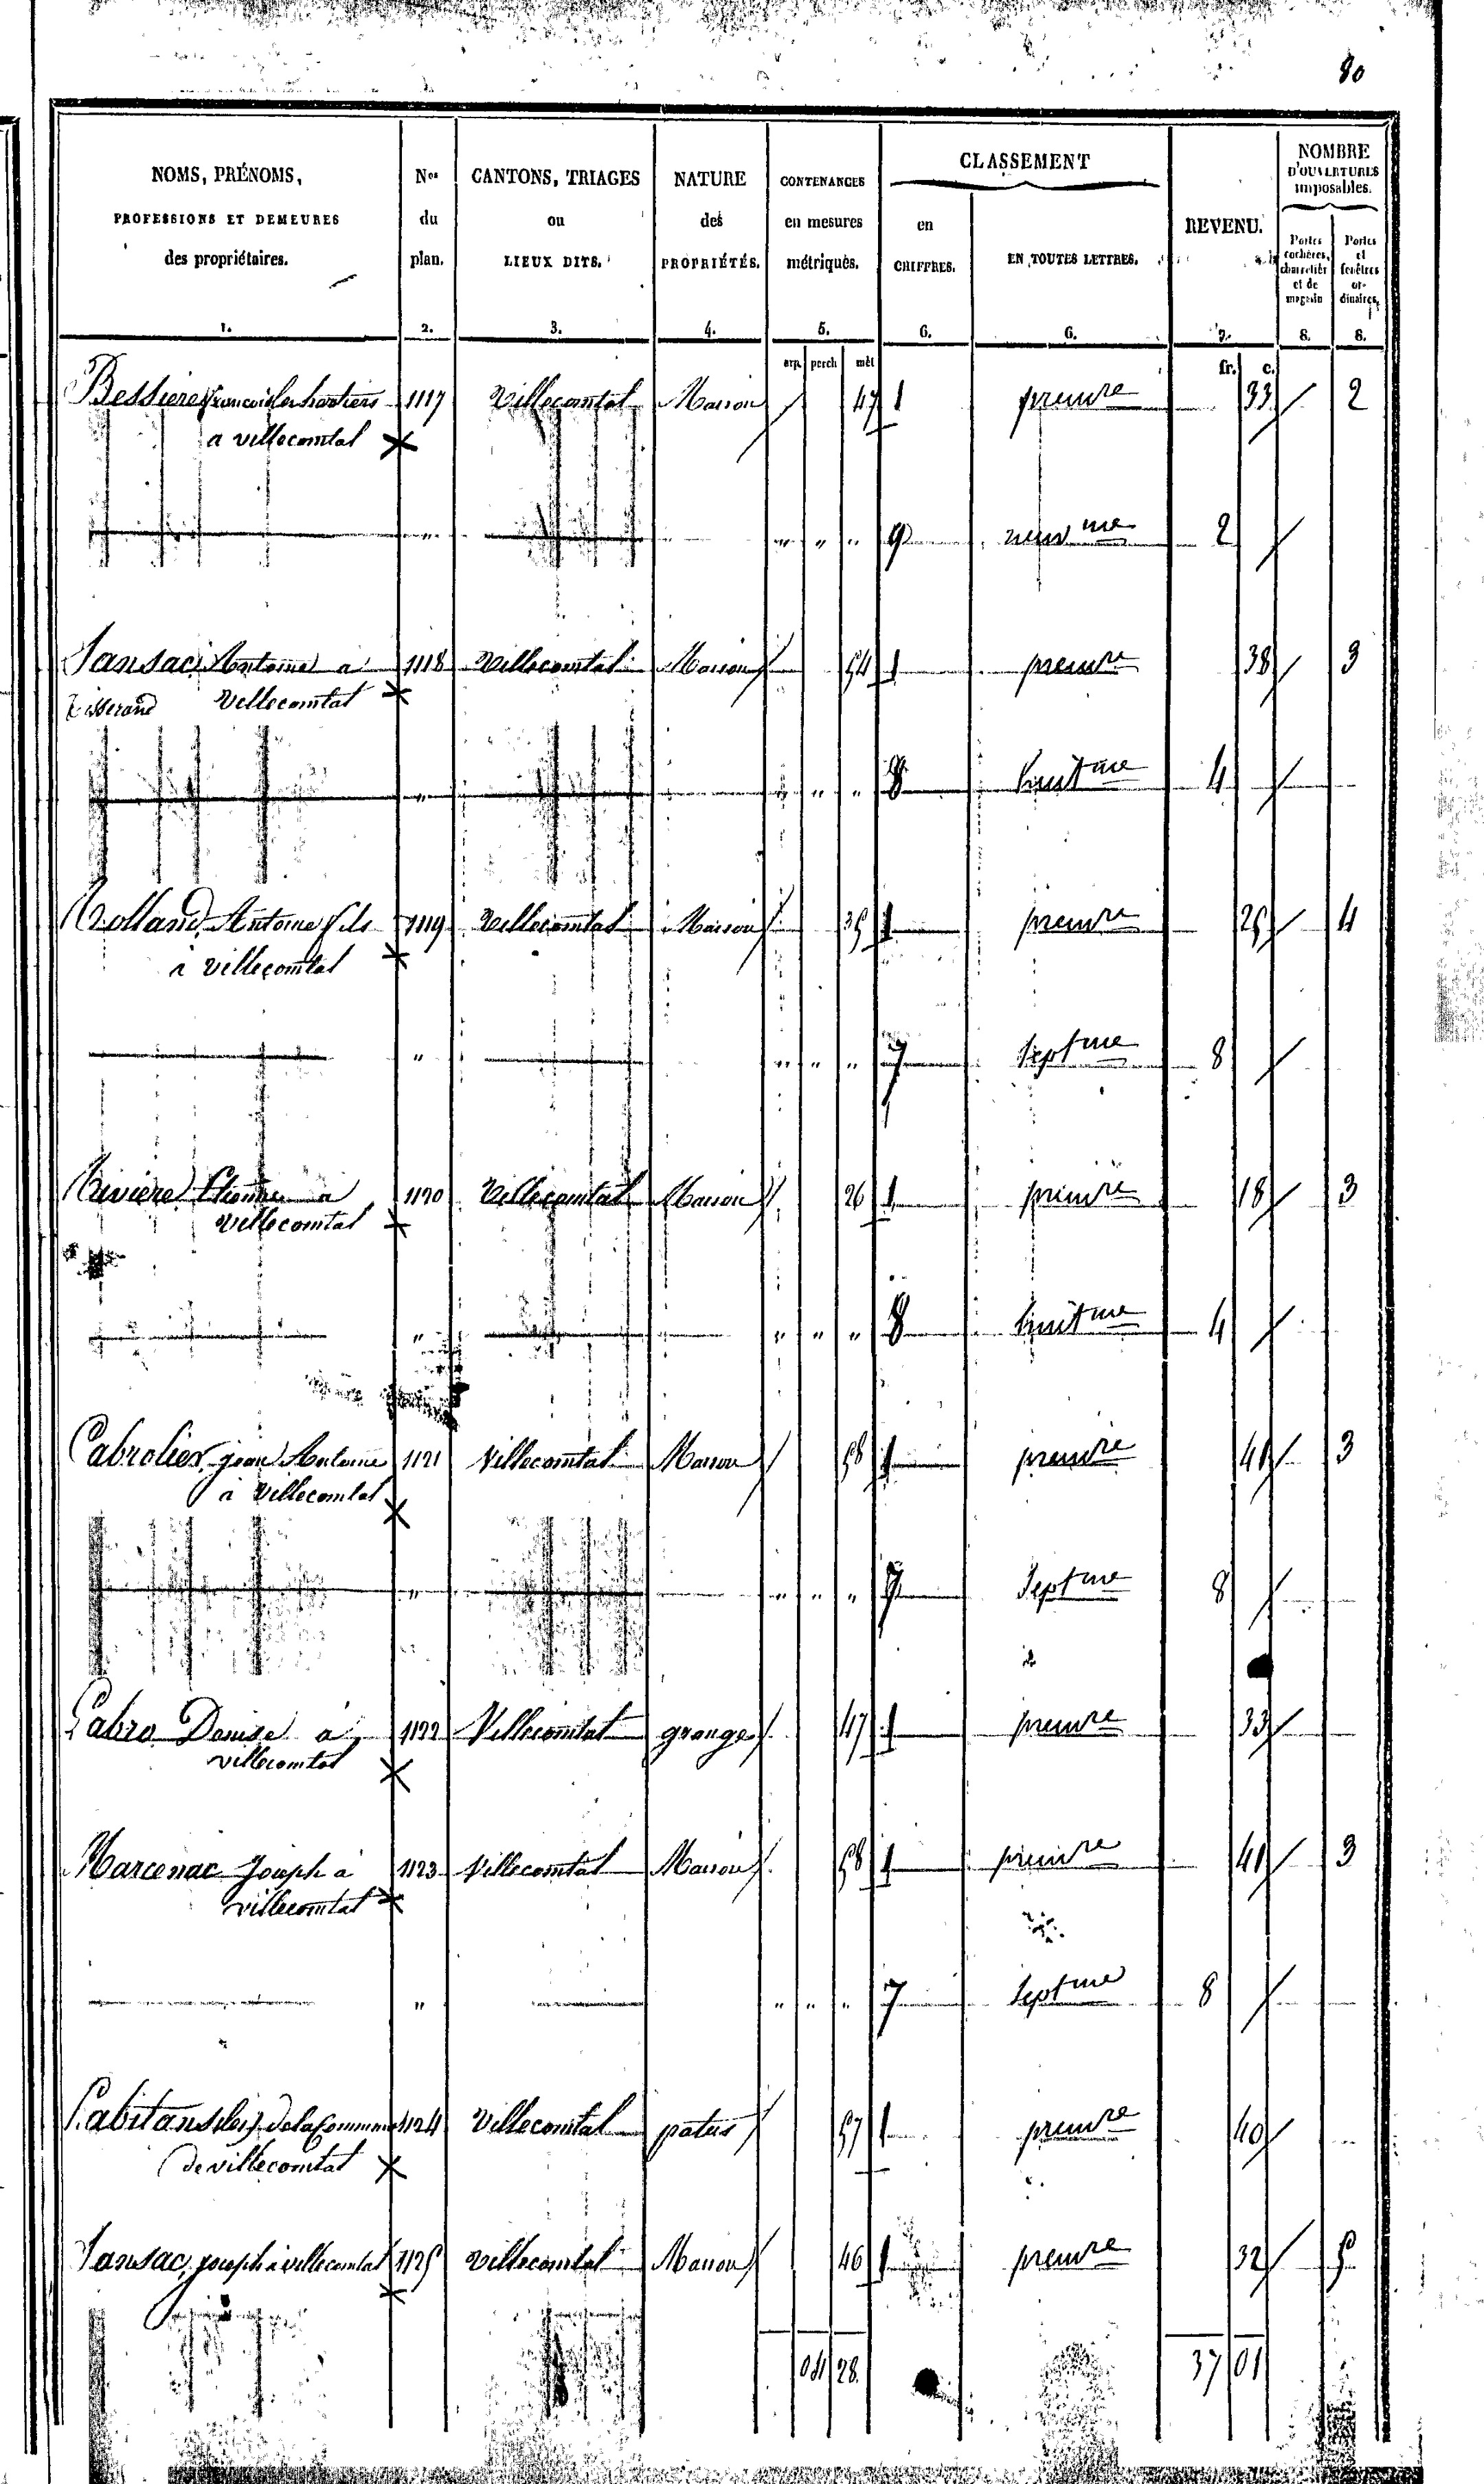 80
NOMS, PRÉNOMS, PROFESSIONS ET DEMEURES des propriétaires. 1.
Nos du plan. 2.
CANTONS, TRIAGES ou LIEUX DITS. 3.
NATURE des PROPRIÉTÉS. 4.
CONTENANCES en mesures métriques. 5.
CLASSEMENT
en CHIFFRES. 6.
EN TOUTES LETTRES. 6.
REVENU. 7.
NOMBRE D'OUVERTURES imposables.
Portes cochères, charretièr et de magasin 8.
Portes et fenêtres ordinaires, 8.
arp. perch mèt fr. c.
Bessiere francois les heritiers 1117 Villecomtal Maison 47 1 premre 33 2
a villecomtal
" " " " 9 neuvme 2
Sansac Antoine a 1118 Villecomtal Maison 54 1 premre 38 3
Tisserand Villecomtal
" " " " 8 huitme 4
Rolland Antoine fils 1119 Villecomtal Maison 35 1 premre 25 4
à Villecomtal
" " " " 7 Septme 8
Riviere Etienne a 1120 Villecomtal Maison 26 1 premre 18 3
Villecomtal
" " " " 8 huitme 4
Cabrolier jean Antoine 1121 Villecomtal Maison 58 1 premre 41 3
à Villecomtal
" " " " 7 Septme 8
Cabro Denise à 1122 Villecomtal grange 47 1 premre 33
villecomtal
Marcenac Joseph à 1123 Villecomtal Maison 58 1 premre 41 3
villecomtal
" " " " 7 Septme 8
de la Commune 1124 Villecomtal patus 57 1 premre 40
de villecomtal
Sansac joseph à villecomtal 1125 Villecomtal Maison 46 1 premre 32 5
04 28 37 01